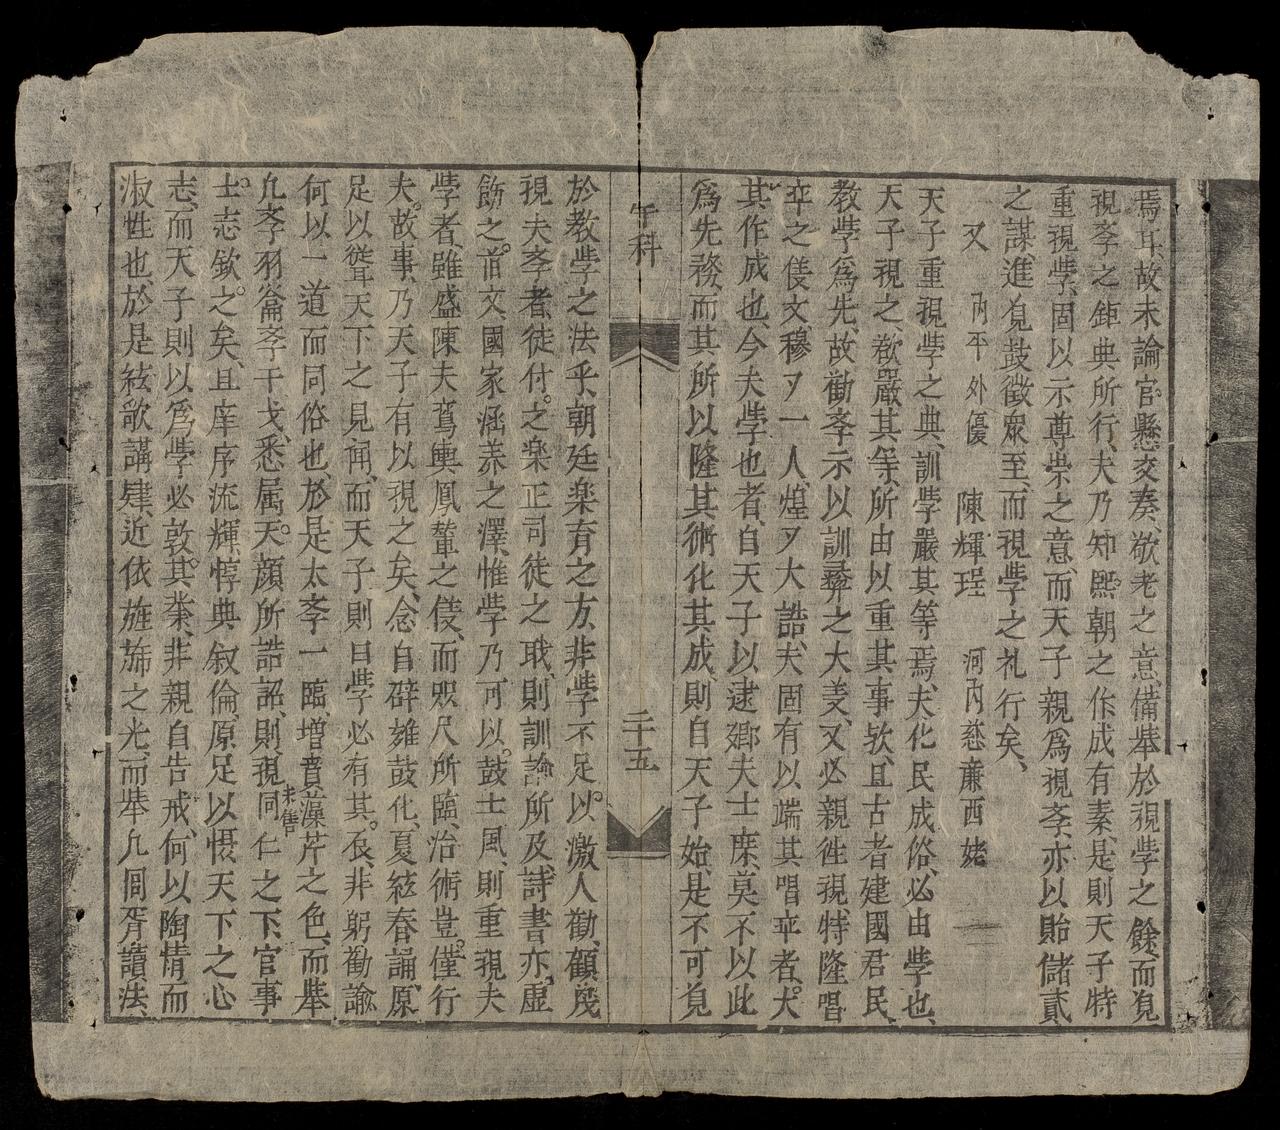 焉耳、故未論官懸交奏、敬老之意、備举於視學之餘、而覓
視斈之鉅典所行、夫乃知熙朝之作成有素、是則天子特
重視學、固以示尊崇之意、而天子親爲視斈、亦以貽儲貳
之謀、進覓鼓徵衆至、而視學之礼行矣、
又 內平外優 陳輝珵 河內慈廉西姥
天子重視學之典、訓學嚴其等焉、夫化民成俗、必由學也、
天子視之、教嚴其等、所由以重其事欤、且古者建國君民、
教學爲先、故勸斈示以訓彛之大美、又必親徃視、特隆唱
卒之伎文、穆又一人、煌又大誥、夫固有以端其唱卒者、
其作成也、今夫學也者、自天子以逮鄉夫士庶、莫不以此
爲先務、而其所以隆其術化其成、則自天子始、是不可覓
午科 二十五
於教學之法乎、朝廷楽育之方、非學不足以激人勸、顧
視夫斈者、徒付之楽正司徒之職、則訓諭所及、詩書亦虛
飭之首文、國家涵养之澤、惟學乃可以鼓士風、則重視夫
學者、雖盛陳夫鸾輿鳳輦之伎、而咫尺所臨、治術豈僅行
夫故事、乃天子有以視之矣、念自辟雍鼓化、夏絃春誦、原
足以聳天下之見聞、而天子則曰學必有其、非躬勸諭
何以一道而同俗也、於是太斈一臨、增賁藻芹之色、而举
凢斈羽籥斈干戈、悉属天顔所誥詔、則視同仁之下、官事
士志欽之矣、且庠序流輝、惇典叙倫、原足以愜天下之心
志、而天子則以爲學必敦其業、非親自告戒、何以陶情而
淑性也、於是絃歌講肄、近依旌旆之光、而举凢同胥讀法、